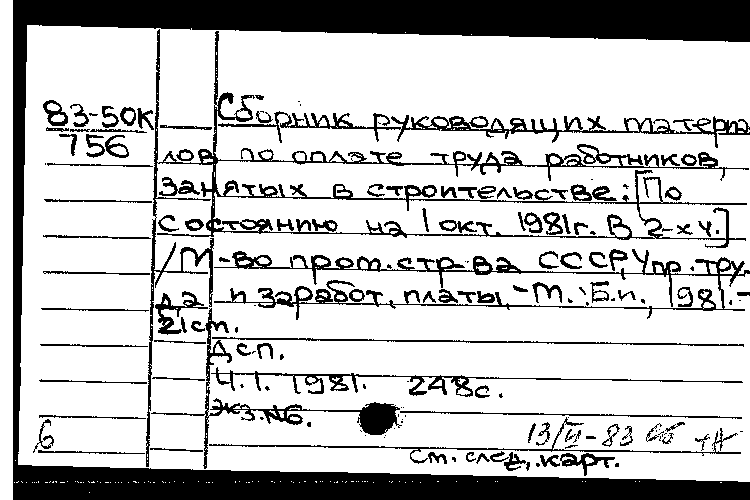 83-50К
756
Сборник руководящих материа
лов по оплате труда работников,
занятых в строительстве: [По
состоянию на 1 окт. 1981г. В 2-х ч.]
/М-во пром.стр-ва СССР, Упр. тру-
да и заработ. платы. - М.: Б.и., 1981.-
21см.
Дсп.
Ч.1. 1981. 248с.
Экз.№6.
6
13/VI-83
ст. след. карт.